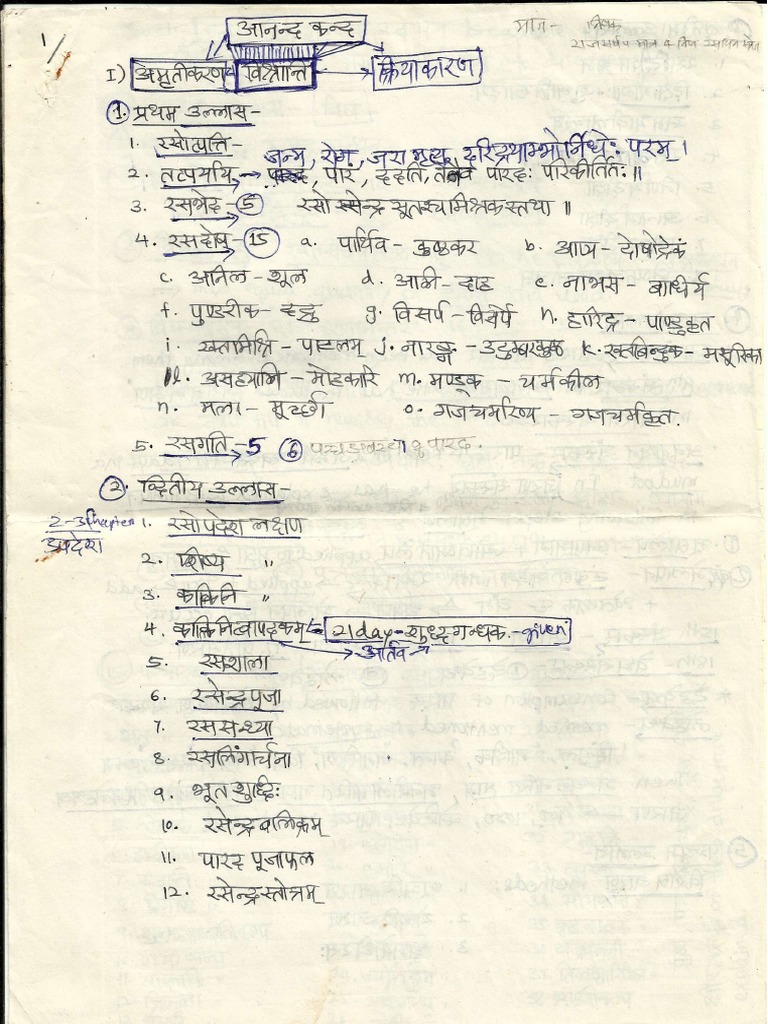 1/
आनन्द कन्द
मान-
I) अमृतीकरण विश्रान्ति → क्रियाकारण
① प्रथम उल्लास-
1. रसोत्पत्ति-
जन्म, रोग, जरा मृत्यु दारिद्र्याम्भोनिधेः परम् ।
2. तत्पर्याय → पारद, पारं, ददाति, तेनैव पारदः परिकीर्तितः ॥
3. रसभेद → 5 रसो रसेन्द्र सूतश्चामिश्रकस्तथा ॥
4. रसदोष → 15 a. पार्थिव - कुष्ठकर b. आप्य - दोषोद्रेकं
c. अनिल - शूल d. आग्नी - दाह e. नाभस - बाधिर्य
f. पुण्डरीक - दद्रु g. विसर्प - विसर्प h. हारिद्र - पाण्डुकृत
i. रक्तामिश्रि - पाटलम् j. नारङ्ग - उदुम्बरकुष्ठ k. रक्तबिन्दुक - मसूरिका
l. असह्याग्नि - मोहकारि m. मण्डूक चर्मकील
n. मला - मूर्च्छा o. गजचर्माख्य - गजचर्मकृत.
5. रसगति - 5 ⑥ पारद.
② द्वितीय उल्लास-
2-3 Chapter उपदेश
1. रसोपदेश लक्षण
2. शिष्य "
3. काकिनि "
4. काकिनिखापदकम् 21 day - शुध्द गन्धक - given
→ आर्तव →
5. रसशाला
6. रसेन्द्रपूजा
7. रससन्ध्या
8. रसलिंगार्चना
9. भूतशुद्धिः
10. रसेन्द्रबलिक्रम्
11. पारद पूजाफल
12. रसेन्द्रस्तोत्रम्